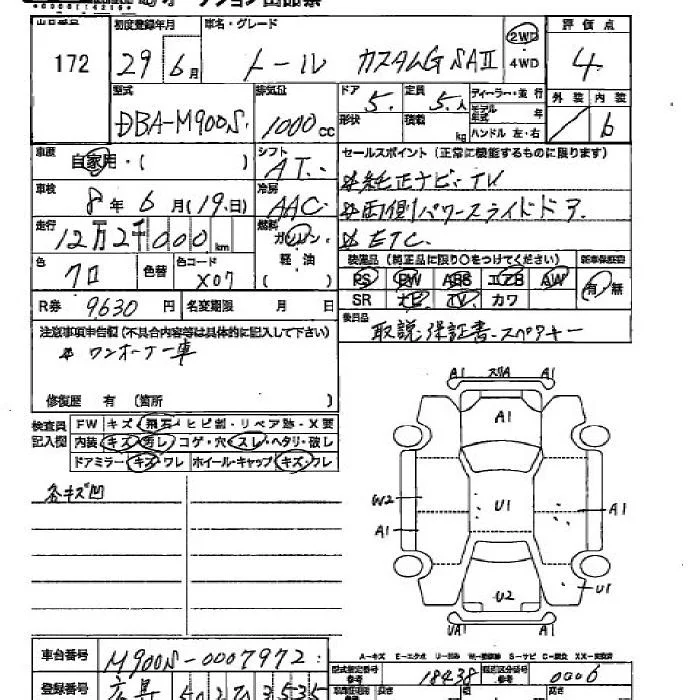 初度登録年月 車名・グレード 評価点
172 29年6月 トール カスタムG SAⅡ 2WD 4WD 4
型式 排気量 ドア 定員 ディーラー・並行 外装 内装
DBA-M900S 1000cc 5. 5.人 モデル年式 年 6
形状 積載 kg ハンドル 左・右
車歴 自家用・( ) シフト AT セールスポイント (正常に機能するものに限ります)
車検 8年6月(19日) 冷房 AAC 純正ナビ・TV
両側パワースライドドア
走行 12万2千000km 燃料 ガソリン・軽油 ( ) ETC.
色 クロ 色替 色コード X07 装備品 (純正品に限り○をつけてください) 新車保証書
PS PW ABS エアB AW 有・無
SR ナビ TV カワ
R券 9630円 名変期限 月 日 後日品
取説・保証書・スペアキー
注意事項申告欄 (不具合内容等は具体的に記入して下さい)
ワンオーナー車
修復歴 有 (箇所 )
検査員記入欄 FW キズ・飛石・ヒビ割・リペア跡・X要
内装 キズ・汚レ・コゲ・穴・スレ・ヘタリ・破レ
ドアミラー キズ・ワレ ホイール・キャップ キズ・ワレ
各キズ凹
A1 スリA A1
A1
W2 U1 A1
A1
U2 U1
UA1 A1
A-キズ E-エクボ U-凹み W-補修跡 S-サビ C-腐食 XX-交換済
車台番号 M900S-0007972
型式指定番号 18438 類別区分番号 0006
登録番号